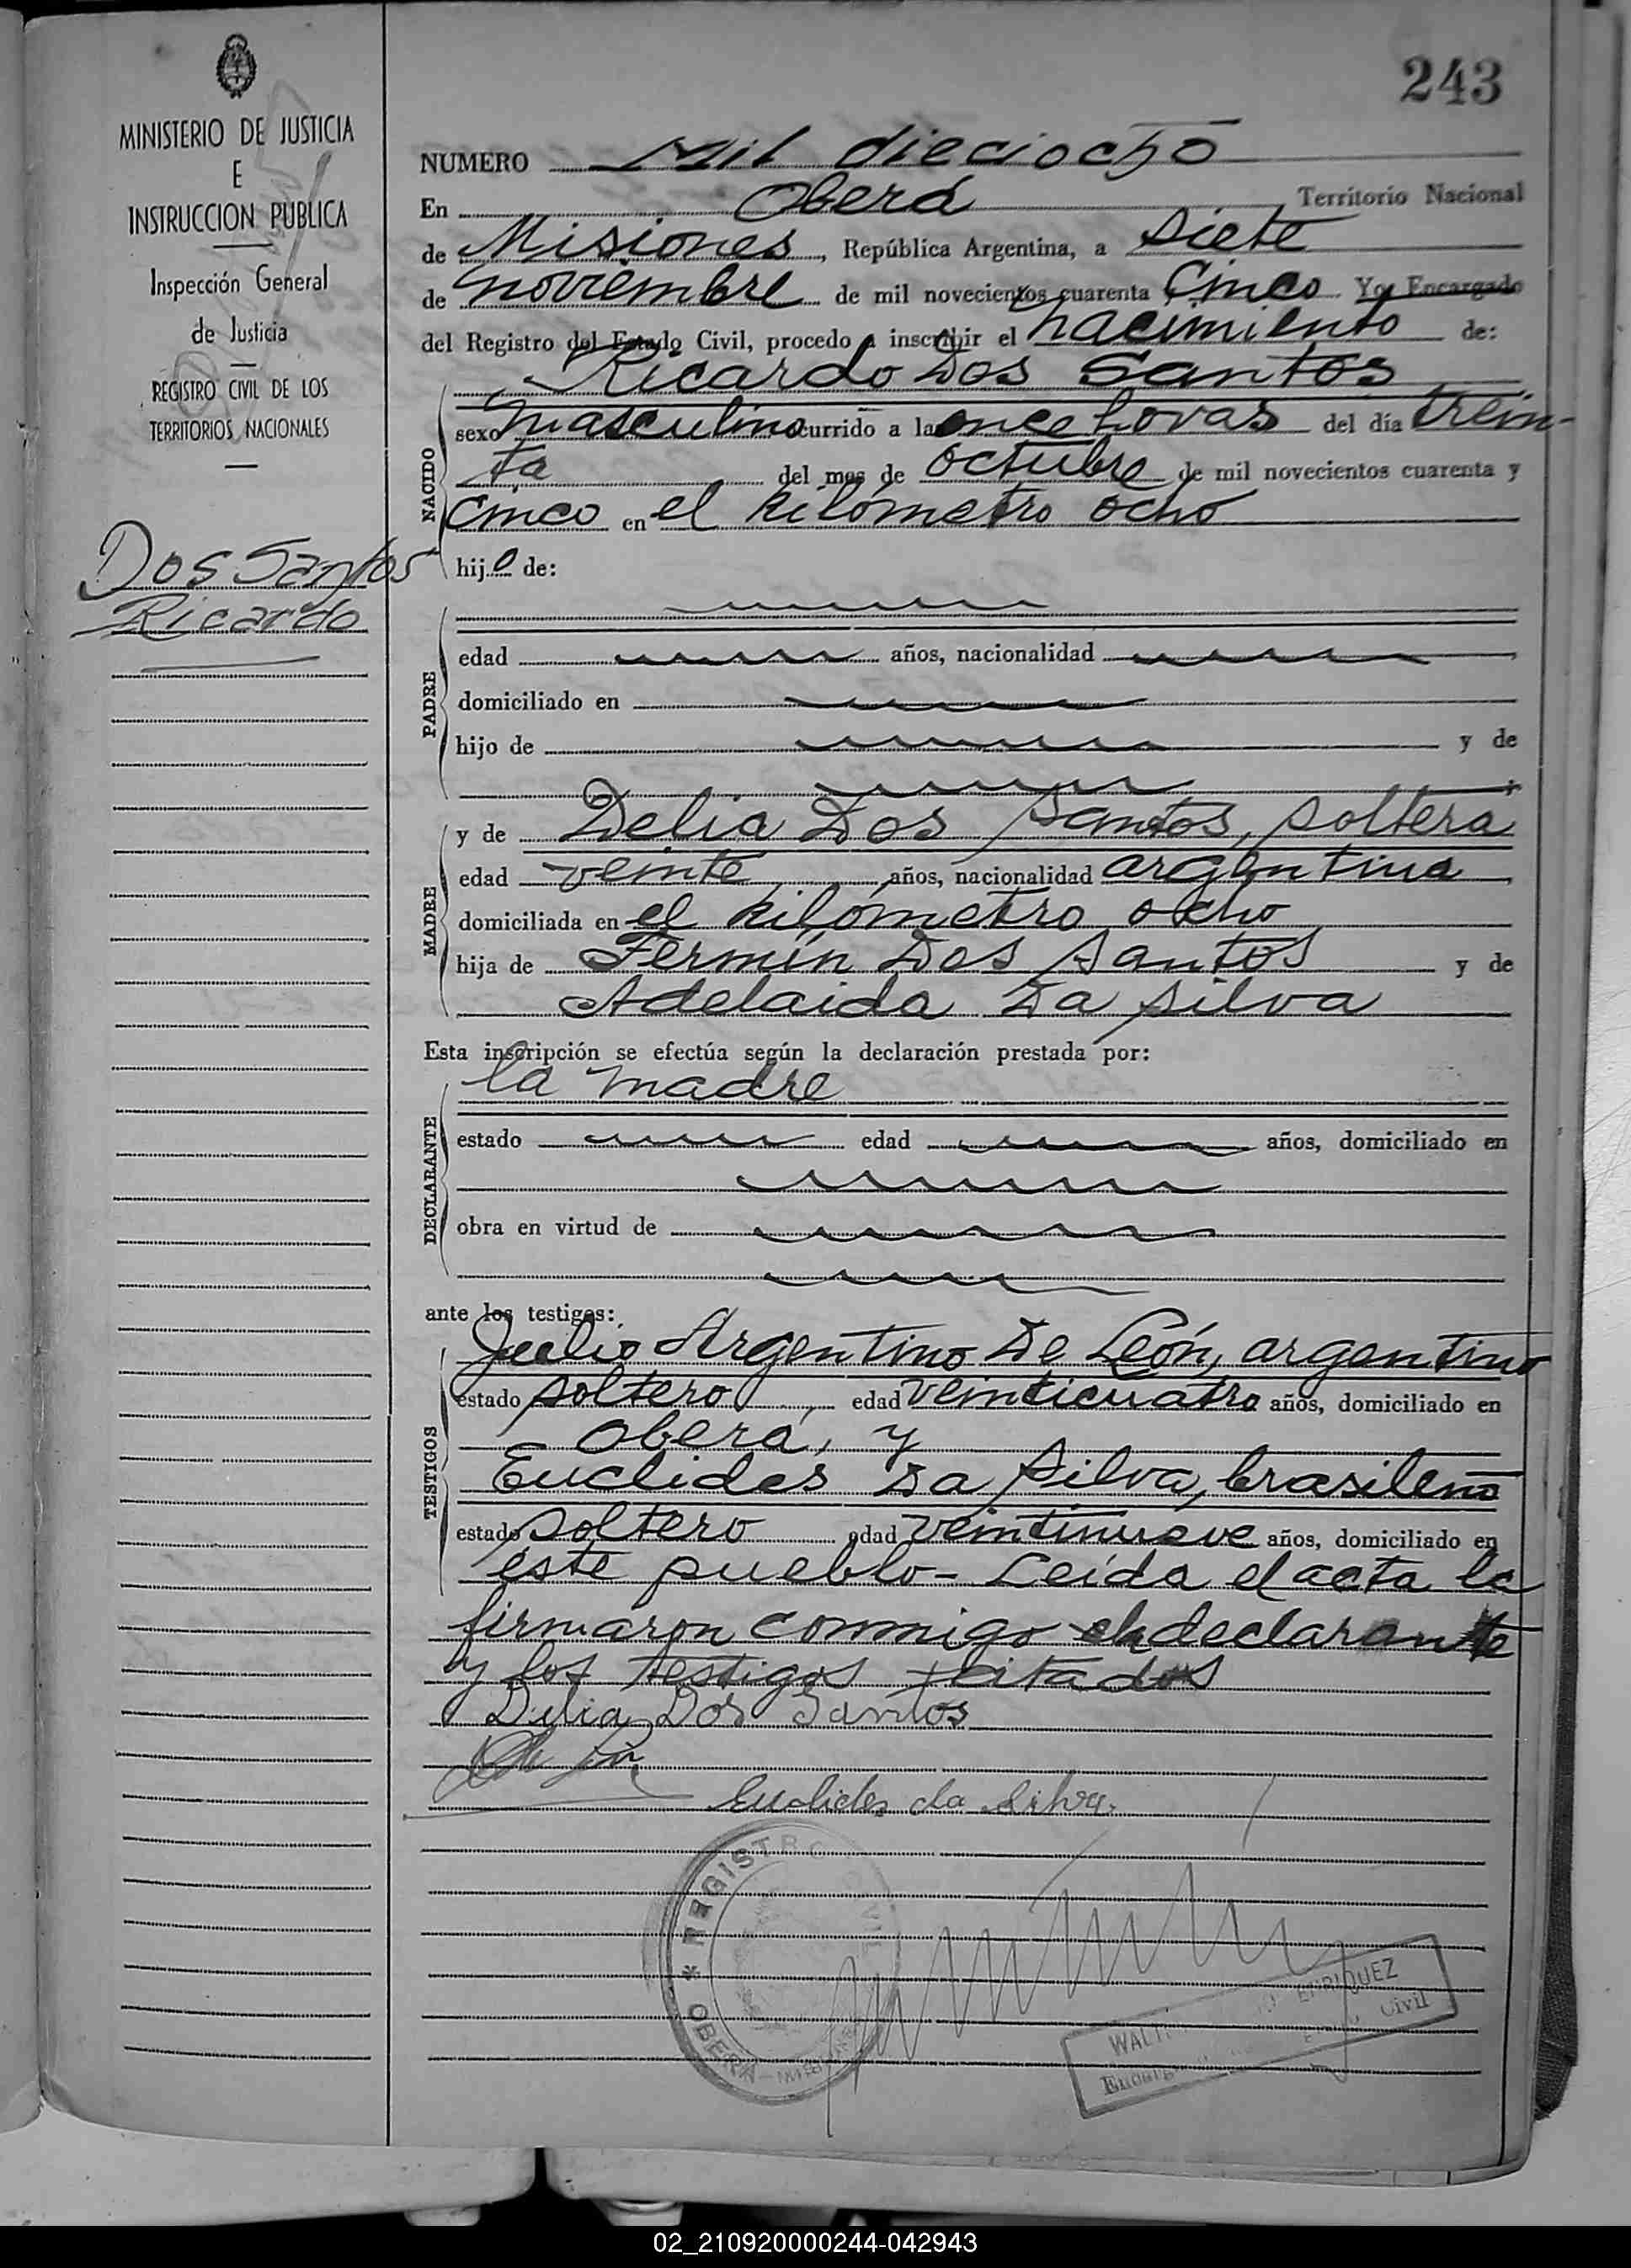 243
MINISTERIO DE JUSTICIA
E
INSTRUCCION PUBLICA
Inspección General
de Justicia
REGISTRO CIVIL DE LOS
TERRITORIOS NACIONALES
Dos Santos
Ricardo
NUMERO Mil dieciocho
En Oberá Territorio Nacional
de Misiones, República Argentina, a siete
de noviembre de mil novecientos cuarenta y cinco Yo, Encargado
del Registro del Estado Civil, procedo a inscribir el nacimiento de:
Ricardo Dos Santos
NACIDO
sexo masculino ocurrido a la once horas del día trein-
ta del mes de octubre de mil novecientos cuarenta y
cinco en el kilómetro ocho
hijo de:
PADRE
edad años, nacionalidad
domiciliado en
hijo de y de
MADRE
y de Delia Dos Santos, soltera
edad veinte años, nacionalidad argentina
domiciliada en el kilómetro ocho
hija de Fermín Dos Santos y de
Adelaida Da Silva
Esta inscripción se efectúa según la declaración prestada por:
la madre
DECLARANTE
estado edad años, domiciliado en
obra en virtud de
ante los testigos:
TESTIGOS
Julio Argentino De León, argentino
estado soltero edad veinticuatro años, domiciliado en
Oberá, y
Euclides Da Silva, brasileño
estado soltero edad veintinueve años, domiciliado en
éste pueblo - Leída el acta la
firmaron conmigo el declarante
y los testigos citados
Dylia Dos Santos
Euclides da Silva
REGISTRO CIVIL
OBERA - MISIONES
ENRIQUEZ
Civil
02_210920000244-042943